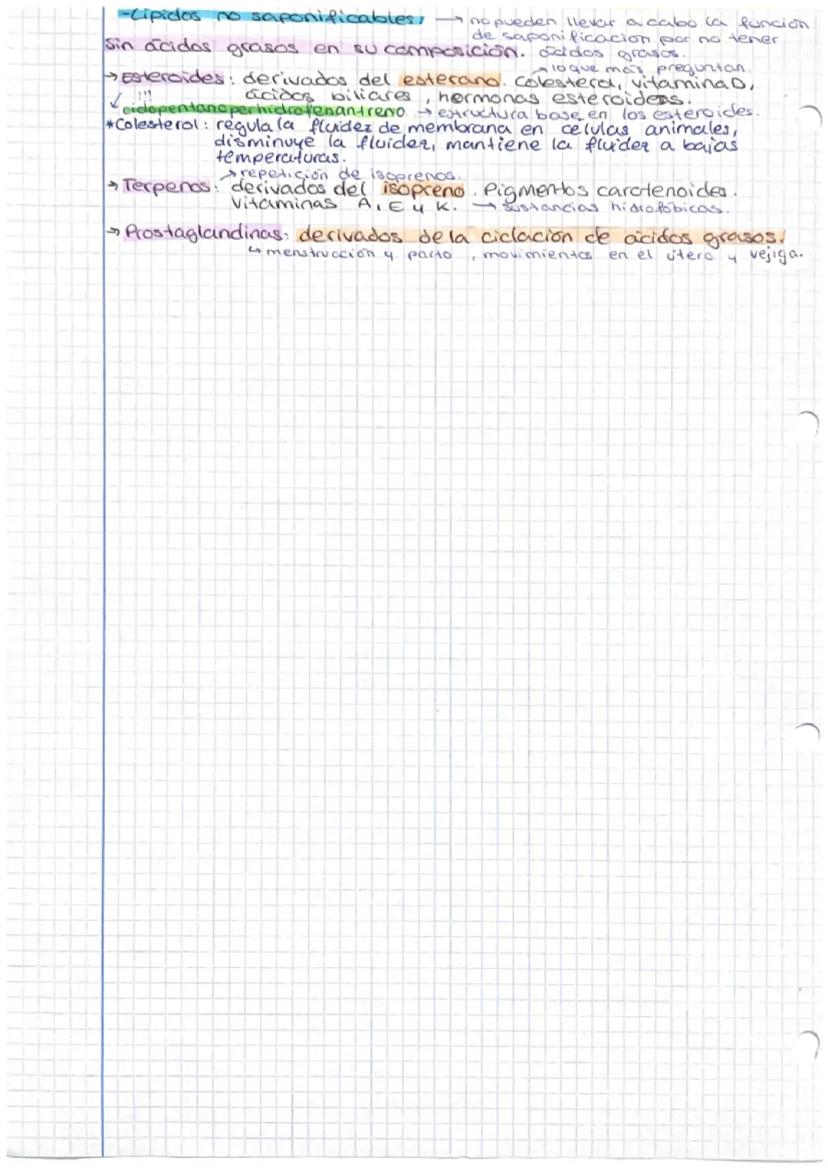 -Lípidos no saponificables, → no pueden llevar a cabo la función
de saponificacion por no tener
ácidos grasos.
sin ácidos grasos en su composición.
→ lo que más preguntan
→ Esteroides: derivados del esterano. Colesterol, vitamina D,
!!! ácidos biliares, hormonas esteroideas.
ciclopentanoperhidrofenantreno → estructura base en los esteroides.
*Colesterol: regula la fluidez de membrana en células animales,
disminuye la fluidez, mantiene la fluidez a bajas
temperaturas.
→ repetición de isoprenos.
→ Terpenos: derivados del isopreno. Pigmentos carotenoides.
Vitaminas A, E y K. → sustancias hidrofóbicas.
→ Prostaglandinas: derivados de la ciclación de ácidos grasos.
↳ menstrucción y parto, movimientos en el útero y vejiga.